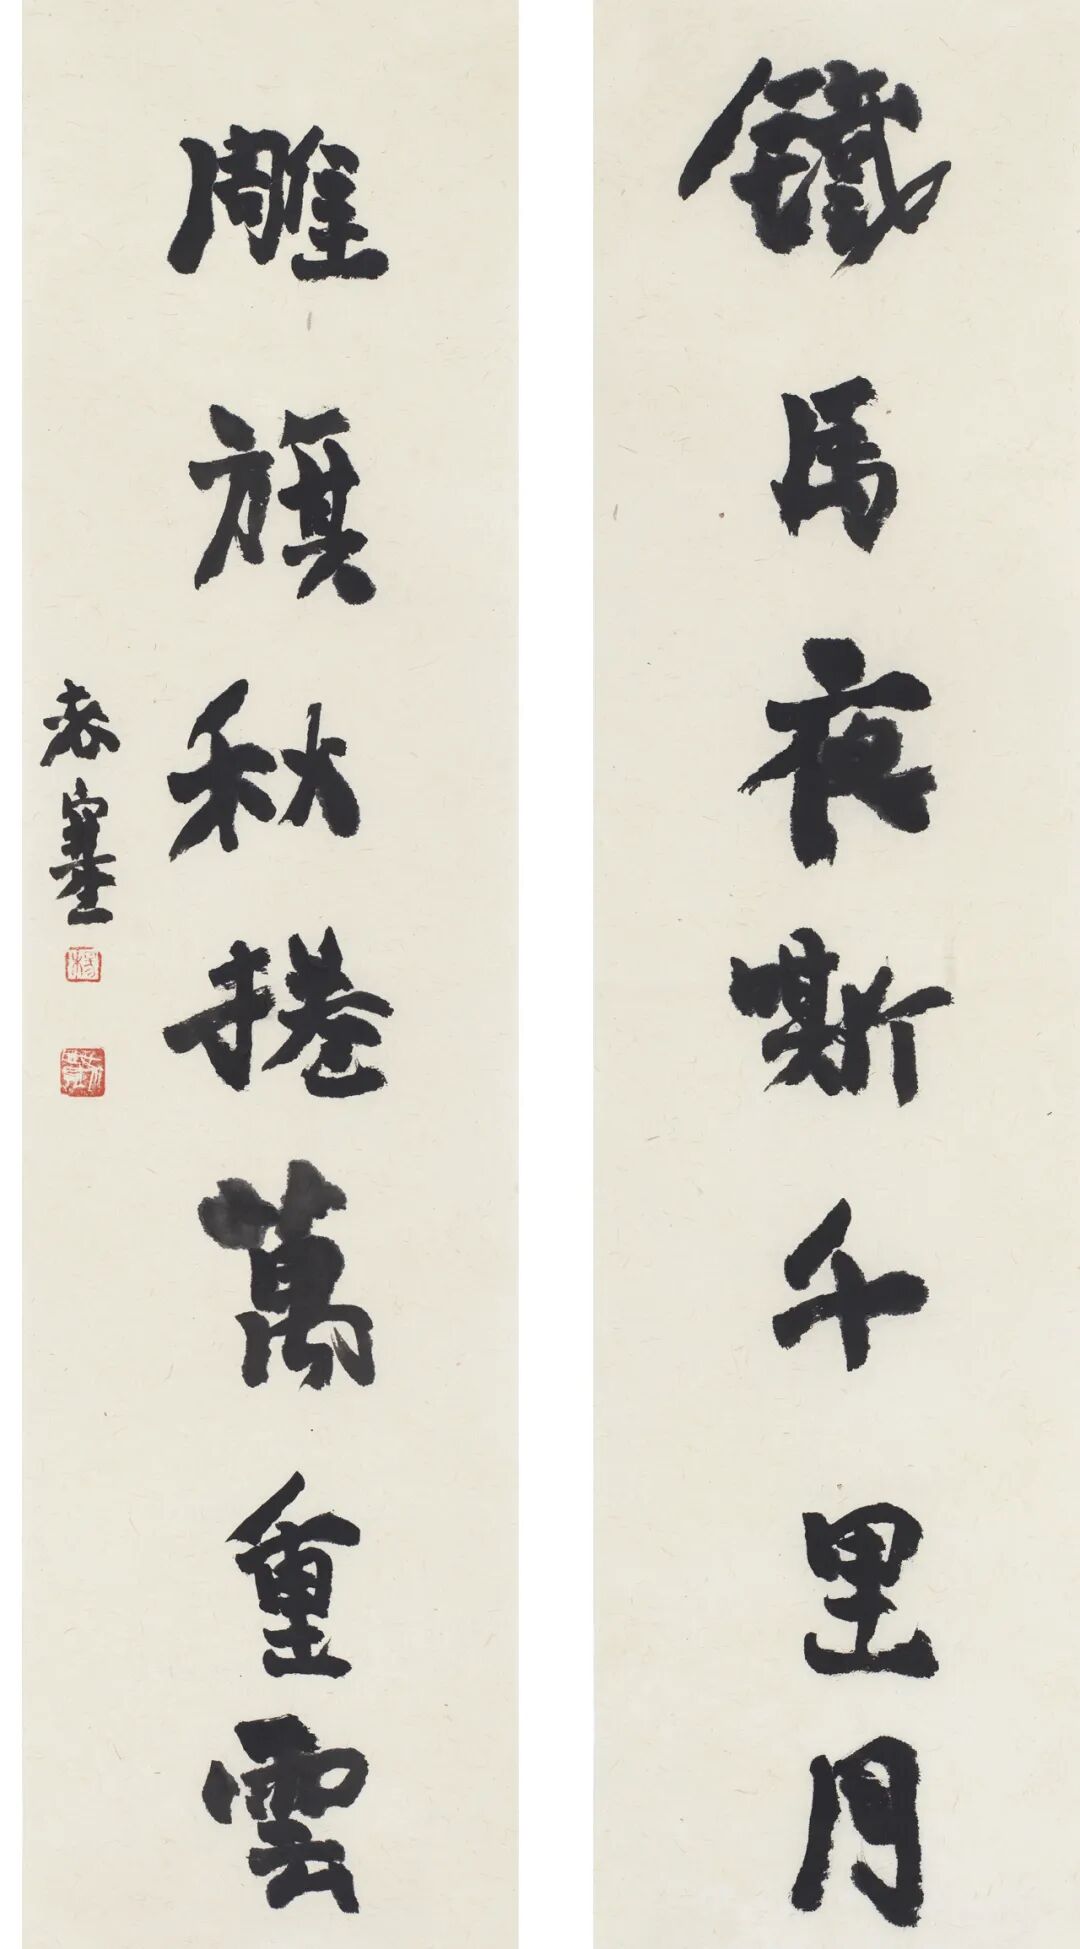 鐵馬夜嘶千里月
雕旗秋捲萬重雲